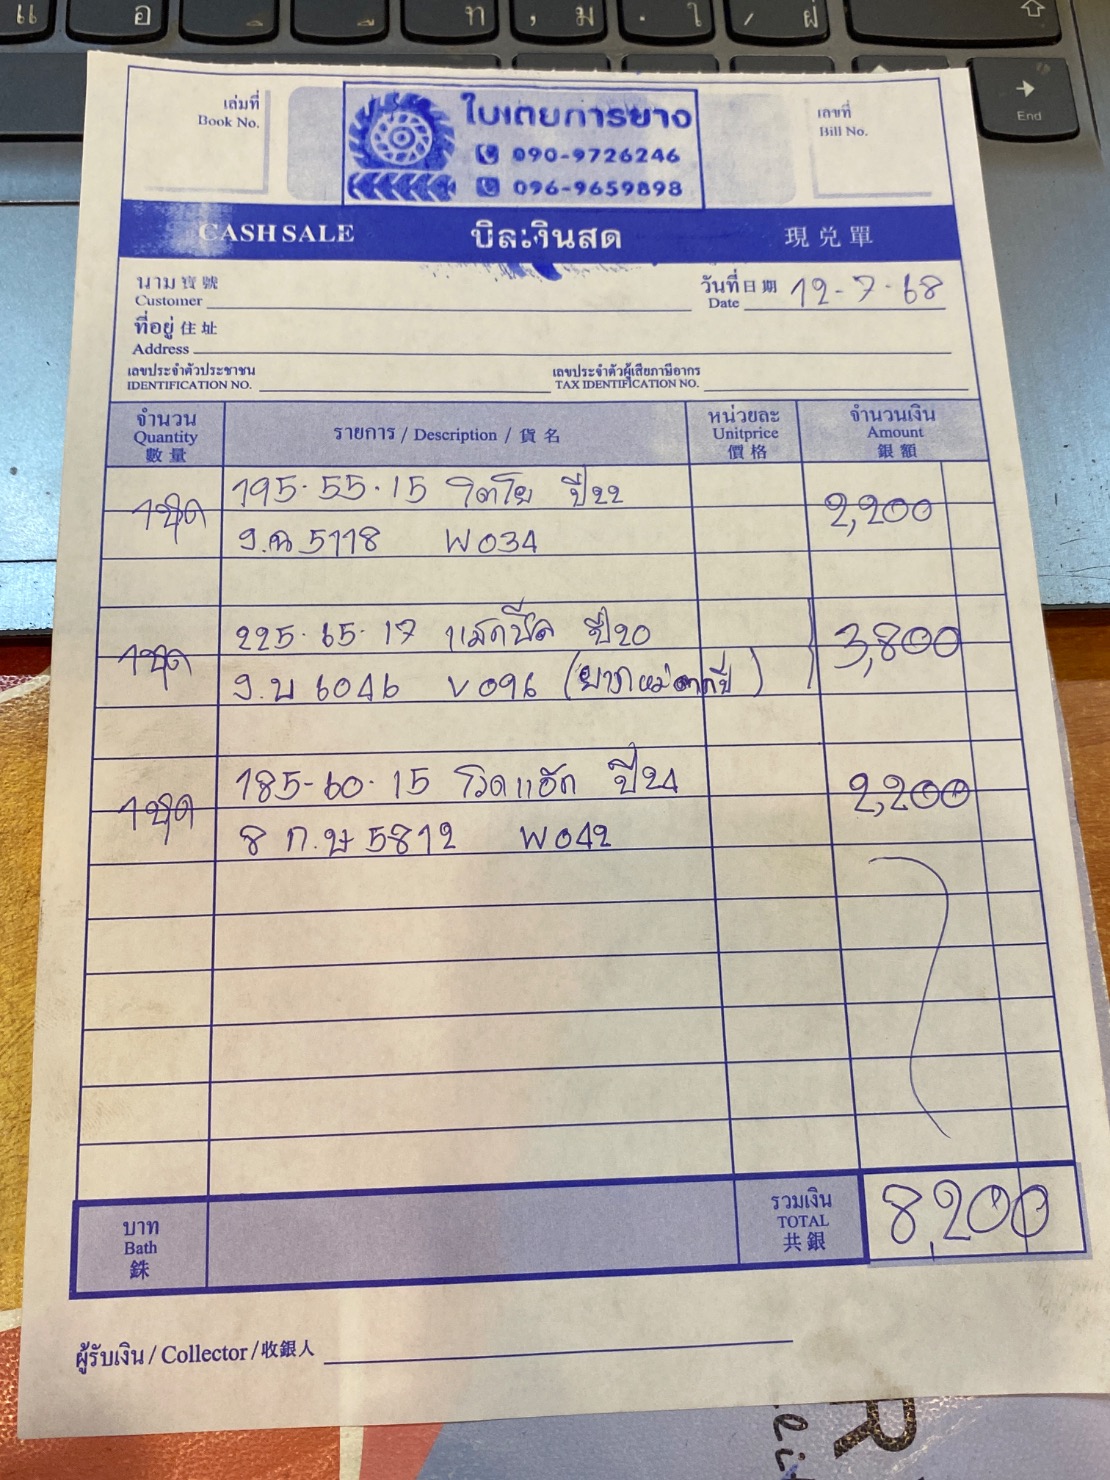 แ อ ท , ม . ใ / ฝ
End
เล่มที่
Book No.
ใบเตยการยาง
090-9726246
096-9659898
เลขที่
Bill No.
CASH SALE บิลเงินสด 現兑單
นาม 寶號
Customer
วันที่ 日期 12-7-68
Date
ที่อยู่ 住址
Address
เลขประจำตัวประชาชน เลขประจำตัวผู้เสียภาษีอากร
IDENTIFICATION NO. TAX IDENTIFICATION NO.
จำนวน รายการ / Description / 貨名 หน่วยละ จำนวนเงิน
Quantity Unitprice Amount
數量 價格 銀額
1ชุด 195-55-15 โตโย ปี22 2,200
5118 W034
1ชุด 225-65-17 ปี20 3,800
6046 V096
1ชุด 185-60-15 ปี24 2,200
8 ก.ษ 5812 W042
บาท รวมเงิน
Bath TOTAL 8,200
銖 共銀
ผู้รับเงิน / Collector / 收銀人
R